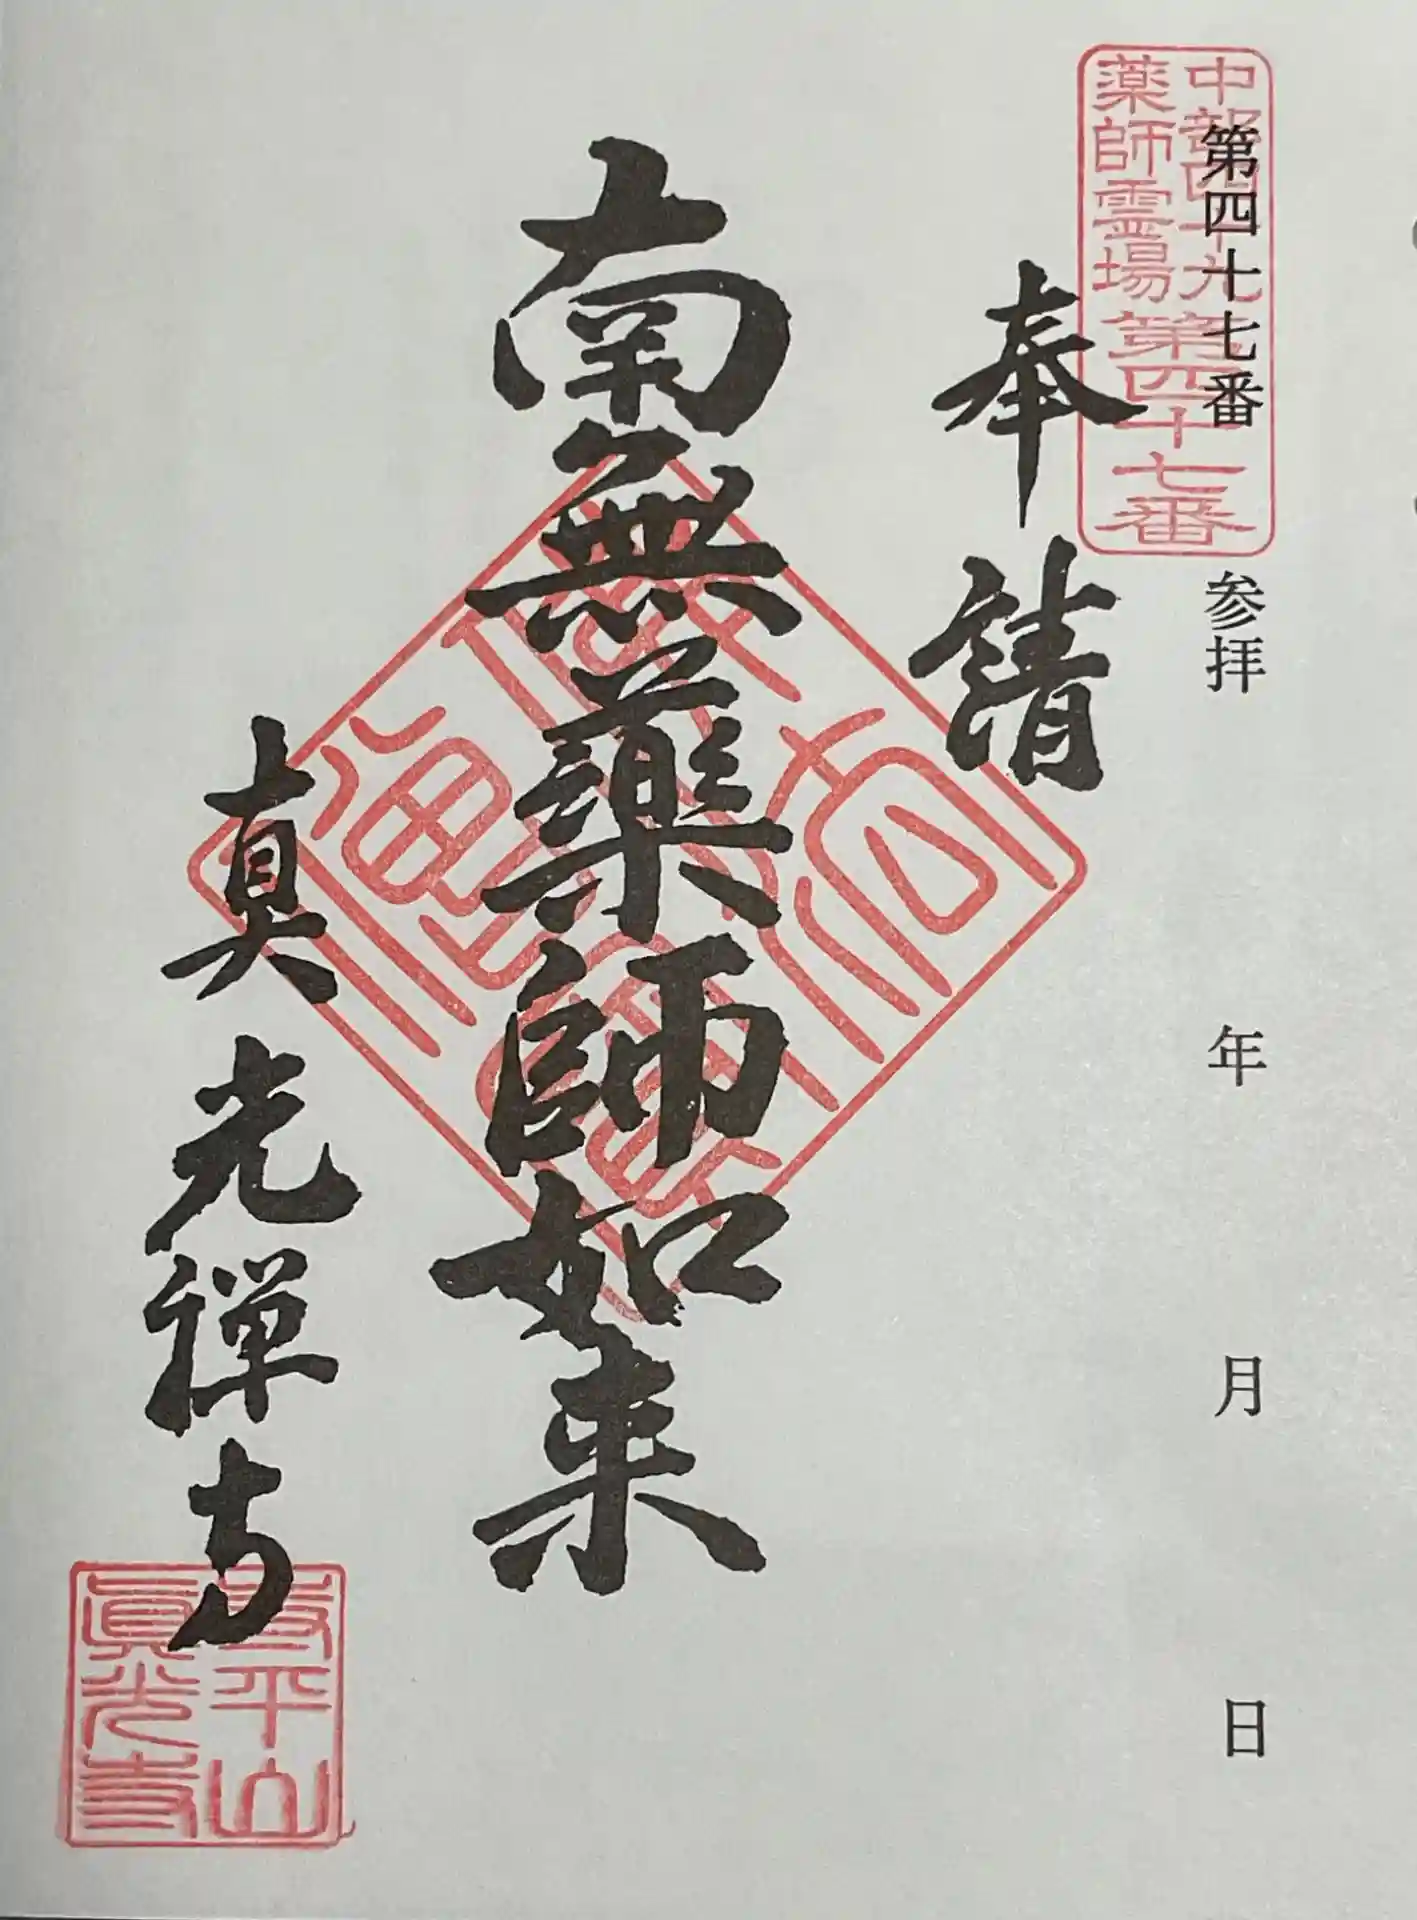 第四十七番 参拝 年 月 日
中部四十九
薬師霊場
第四十七番
奉請
南無薬師如来
真光禅寺
平山
眞光寺